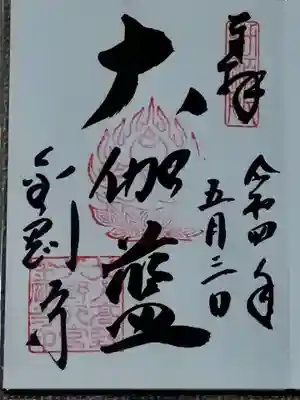 奉拝
令和四年
五月三日
大伽藍
金剛寺